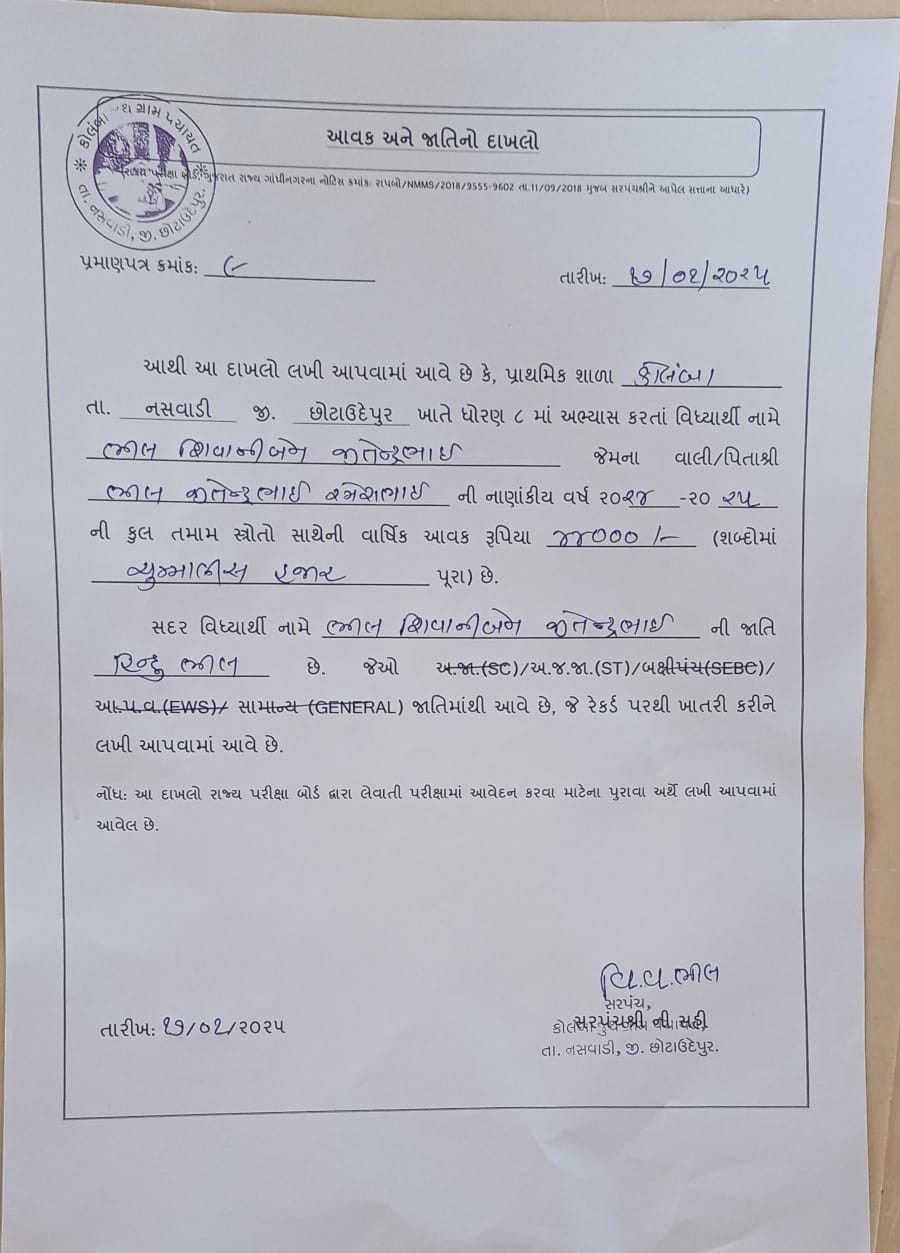 આવક અને જાતિનો દાખલો
રાજ્ય પરીક્ષા બોર્ડ, ગુજરાત રાજ્ય ગાંધીનગરના નોટિસ ક્રમાંકઃ રાપબો/NMMS/2018/9555-9602 તા.11/09/2018 મુજબ સરપંચશ્રીને આપેલ સત્તાના આધારે)
ગ્રામ પંચાયત
તા. નસવાડી, જી. છોટાઉદેપુર.
પ્રમાણપત્ર ક્રમાંક:
તારીખ: ૧૭/૦૨/૨૦૨૫
આથી આ દાખલો લખી આપવામાં આવે છે કે, પ્રાથમિક શાળા
તા. નસવાડી જી. છોટાઉદેપુર ખાતે ધોરણ ૮ માં અભ્યાસ કરતાં વિધ્યાર્થી નામે
ભીલ શિવાનીબેન જીતેન્દ્રભાઈ જેમના વાલી/પિતાશ્રી
ભીલ જીતેન્દ્રભાઈ રમેશભાઈ ની નાણાંકીય વર્ષ ૨૦૨૪ -૨૦ ૨૫
ની કુલ તમામ સ્ત્રોતો સાથેની વાર્ષિક આવક રૂપિયા ૪૪૦૦૦ /- (શબ્દોમાં
ચુમ્માલીસ હજાર પૂરા) છે.
સદર વિધ્યાર્થી નામે ભીલ શિવાનીબેન જીતેન્દ્રભાઈ ની જાતિ
હિન્દુ ભીલ છે. જેઓ અ.જા.(SC)/અ.જ.જા.(ST)/બક્ષીપંચ(SEBC)/
આ.પ.વ.(EWS)/ સામાન્ય (GENERAL) જાતિમાંથી આવે છે, જે રેકર્ડ પરથી ખાતરી કરીને
લખી આપવામાં આવે છે.
નોંધ: આ દાખલો રાજ્ય પરીક્ષા બોર્ડ દ્વારા લેવાતી પરીક્ષામાં આવેદન કરવા માટેના પુરાવા અર્થે લખી આપવામાં
આવેલ છે.
વિ.વ.ભીલ
સરપંચ,
સરપંચશ્રી ની સહી
તારીખ: ૧૭/૦૨/૨૦૨૫
તા. નસવાડી, જી. છોટાઉદેપુર.